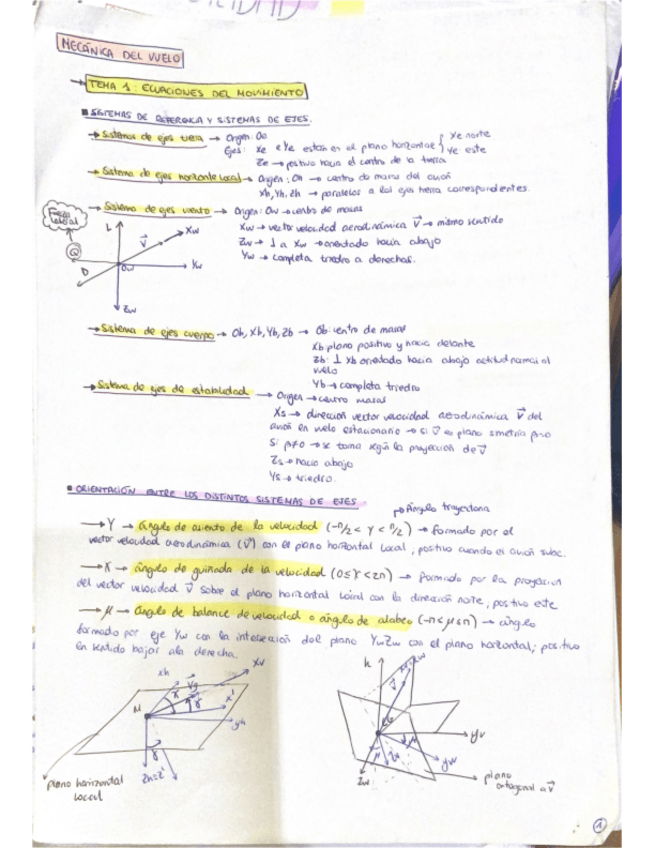 MECÁNICA DEL VUELO
→ TEMA 1: ECUACIONES DEL MOVIMIENTO
■ SISTEMAS DE REFERENCIA Y SISTEMAS DE EJES.
→ Sistemas de ejes tierra → Origen: Oe
Ejes: Xe e Ye están en el plano horizontal { Xe norte
Ye este
Ze → positivo hacia el centro de la tierra
→ Sistema de ejes horizonte local → Origen: Oh → centro de masas del avión
Xh, Yh, Zh → paralelos a los ejes tierra correspondientes.
→ Sistema de ejes viento → Origen: Ow → centro de masas
Xw → vector velocidad aerodinámica V → mismo sentido
Zw → ⊥ a Xw → orientado hacia abajo
Yw → completa triedro a derechas.
Fuerza lateral
L
V
Xw
Q
D
Ow
Yw
Zw
→ Sistema de ejes cuerpo → Ob, Xb, Yb, Zb → Ob: centro de masas
Xb plano positivo y hacia delante
Zb: ⊥ Xb orientado hacia abajo actitud normal al
vuelo
Yb → completa triedro
→ Sistema de ejes de estabilidad → Origen → centro masas
Xs → dirección vector velocidad aerodinámica V del
avión en vuelo estacionario → si V es plano simetría β=0
Si β≠0 → se toma según la proyección de V
Zs → hacia abajo
Ys → triedro.
■ ORIENTACIÓN ENTRE LOS DISTINTOS SISTEMAS DE EJES
Ángulo trayectoria
→ γ → ángulo de asiento de la velocidad (-π/2 < γ < π/2) → formado por el
vector velocidad aerodinámica (V) con el plano horizontal local, positivo cuando el avión sube.
→ χ → ángulo de guiñada de la velocidad (0≤γ<2π) → formado por la proyección
del vector velocidad V sobre el plano horizontal local con la dirección norte, positivo este
→ μ → ángulo de balance de velocidad o ángulo de alabeo (-π<μ≤π) → ángulo
formado por eje Yw con la intersección del plano YwZw con el plano horizontal; positivo
en sentido bajar ala derecha.
xh
Vg
Xw
χ
γ
x'
M
yh
γ
Zh=z'
plano horizontal
local
h
V
Xw
yv
μ
yw
Zw
plano
ortogonal a V
1